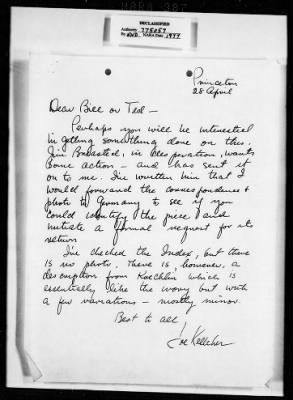 DECLASSIFIED
Authority 775057
By NARA Date 1977
Princeton
28 April
Dear Bill or Ted —
Perhaps you will be interested
in getting something done on this.
Jim in desperation, wants
some action — and has sent it
on to me. I've written him that I
would forward the correspondence &
photo to Germany to see if you
could identify the piece and
initiate a formal request for its
return
I've checked the Index, but there
is no photo. There is, however, a
description from Koechlin which is
essentially like the ivory but with
a few variations — mostly minor.
Best to all
Joe Kelleher